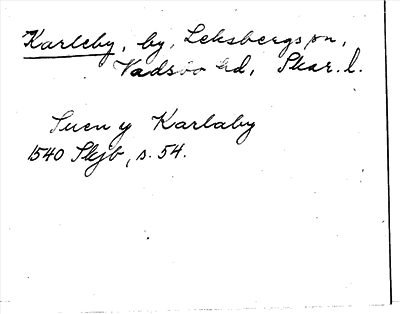 Karleby, by, Leksbergs sn,
Vadsbo hd, Skar. l.
Suen y Karlaby
1540 Skjb, s. 54.